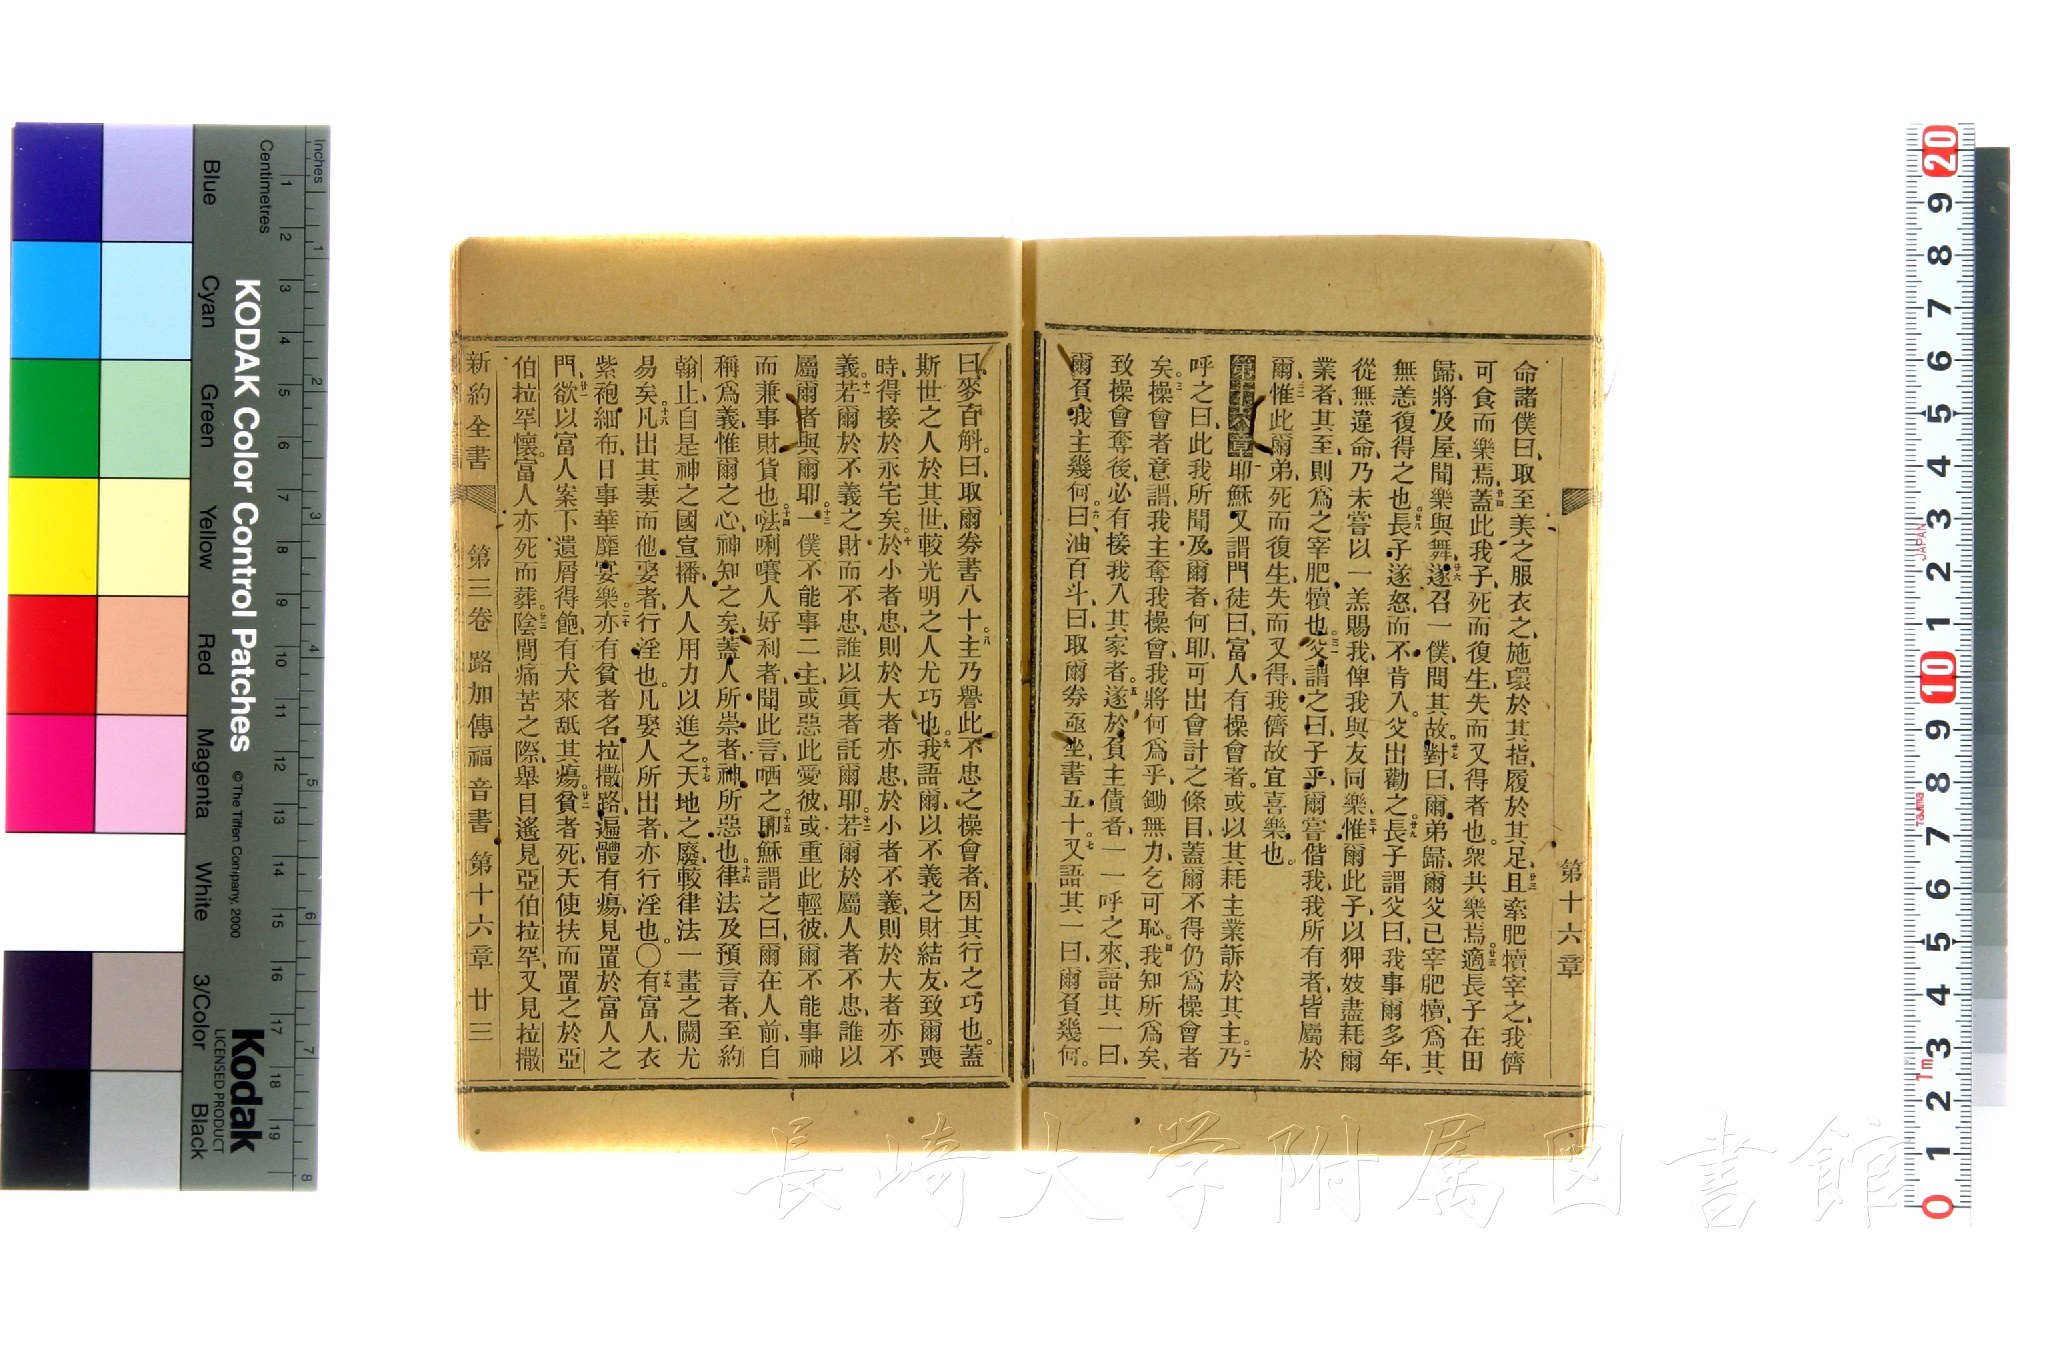 第十六章
命諸僕曰、取至美之服衣之、施環於其指、履於其足、廿三且牽肥犢宰之、我儕
可食而樂焉、廿四蓋此我子、死而復生、失而又得者也。衆共樂焉。廿五適長子在田
歸、將及屋、聞樂與舞、廿六遂召一僕、問其故。廿七對曰、爾弟歸、爾父已宰肥犢、爲其
無恙復得之也。廿八長子遂怒、而不肯入。父出勸之、廿九長子謂父曰、我事爾多年、
從無違命、乃未嘗以一羔賜我、俾我與友同樂、三十惟爾此子、以狎妓盡耗爾
業者、其至、則爲之宰肥犢也。三一父謂之曰、子乎、爾嘗偕我、我所有者、皆屬於
爾、三二惟此爾弟、死而復生、失而又得、我儕故宜喜樂也。
第十六章 耶穌又謂門徒曰、富人有操會者。或以其耗主業訴於其主。二乃
呼之曰、此我所聞及爾者、何耶、可出會計之條目、蓋爾不得仍爲操會者
矣。三操會者意謂、我主奪我操會、我將何爲乎、鋤無力、乞可恥。四我知所爲矣、
致操會奪後、必有接我入其家者。五遂於負主債者、一一呼之來、語其一曰、
爾負我主幾何。六曰、油百斗、曰、取爾券、亟坐、書五十。七又語其一曰、爾負幾何。
曰、麥百斛。曰、取爾券書八十。八主乃譽此不忠之操會者、因其行之巧也。蓋
斯世之人、於其世、較光明之人尤巧也。九我語爾、以不義之財結友、致爾喪
時、得接於永宅矣。十於小者忠、則於大者亦忠、於小者不義、則於大者亦不
義。十一若爾於不義之財而不忠、誰以眞者託爾耶。十二若爾於屬人者不忠、誰以
屬爾者與爾耶。十三一僕不能事二主、或惡此愛彼、或重此輕彼、爾不能事神
而兼事財貨也。十四𠵽唎㘔人好利者、聞此言、哂之。十五耶穌謂之曰、爾在人前、自
稱爲義、惟爾之心、神知之矣、蓋人所崇者、神所惡也。十六律法及預言者、至約
翰止、自是神之國宣播、人人用力以進之。十七天地之廢、較律法一畫之闕尤
易矣。十八凡出其妻而他娶者、行淫也。凡娶人所出者、亦行淫也。〇十九有富人、衣
紫袍細布、日事華靡宴樂。二十亦有貧者、名拉撒路、遍體有瘍、見置於富人之
門、廿一欲以富人案下遺屑得飽、有犬來舐其瘍。廿二貧者死、天使扶而置之於亞
伯拉罕懷。富人亦死而葬。廿三陰間痛苦之際、舉目遙見亞伯拉罕、又見拉撒
新約全書 第三卷 路加傳福音書 第十六章 廿三
KODAK Color Control Patches
© The Tiffen Company, 2000
Kodak
LICENSED PRODUCT
Inches
Centimetres
Blue Cyan Green Yellow Red Magenta White 3/Color Black
1 2 3 4 5 6 7 8 9 10 11 12 13 14 15 16 17 18 19
1 2 3 4 5 6 7 8
20 9 8 7 6 5 4 3 2 1 10 9 8 7 6 5 4 3 2 1 0
JAPAN
Tajima
1m
長崎大学附属図書館